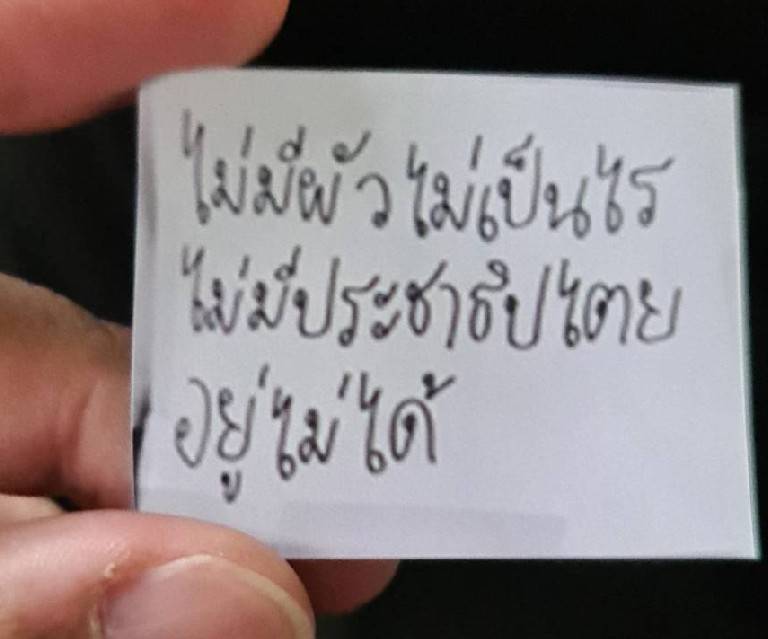 ไม่มีผัวไม่เป็นไร
ไม่มีประชาธิปไตย
อยู่ไม่ได้